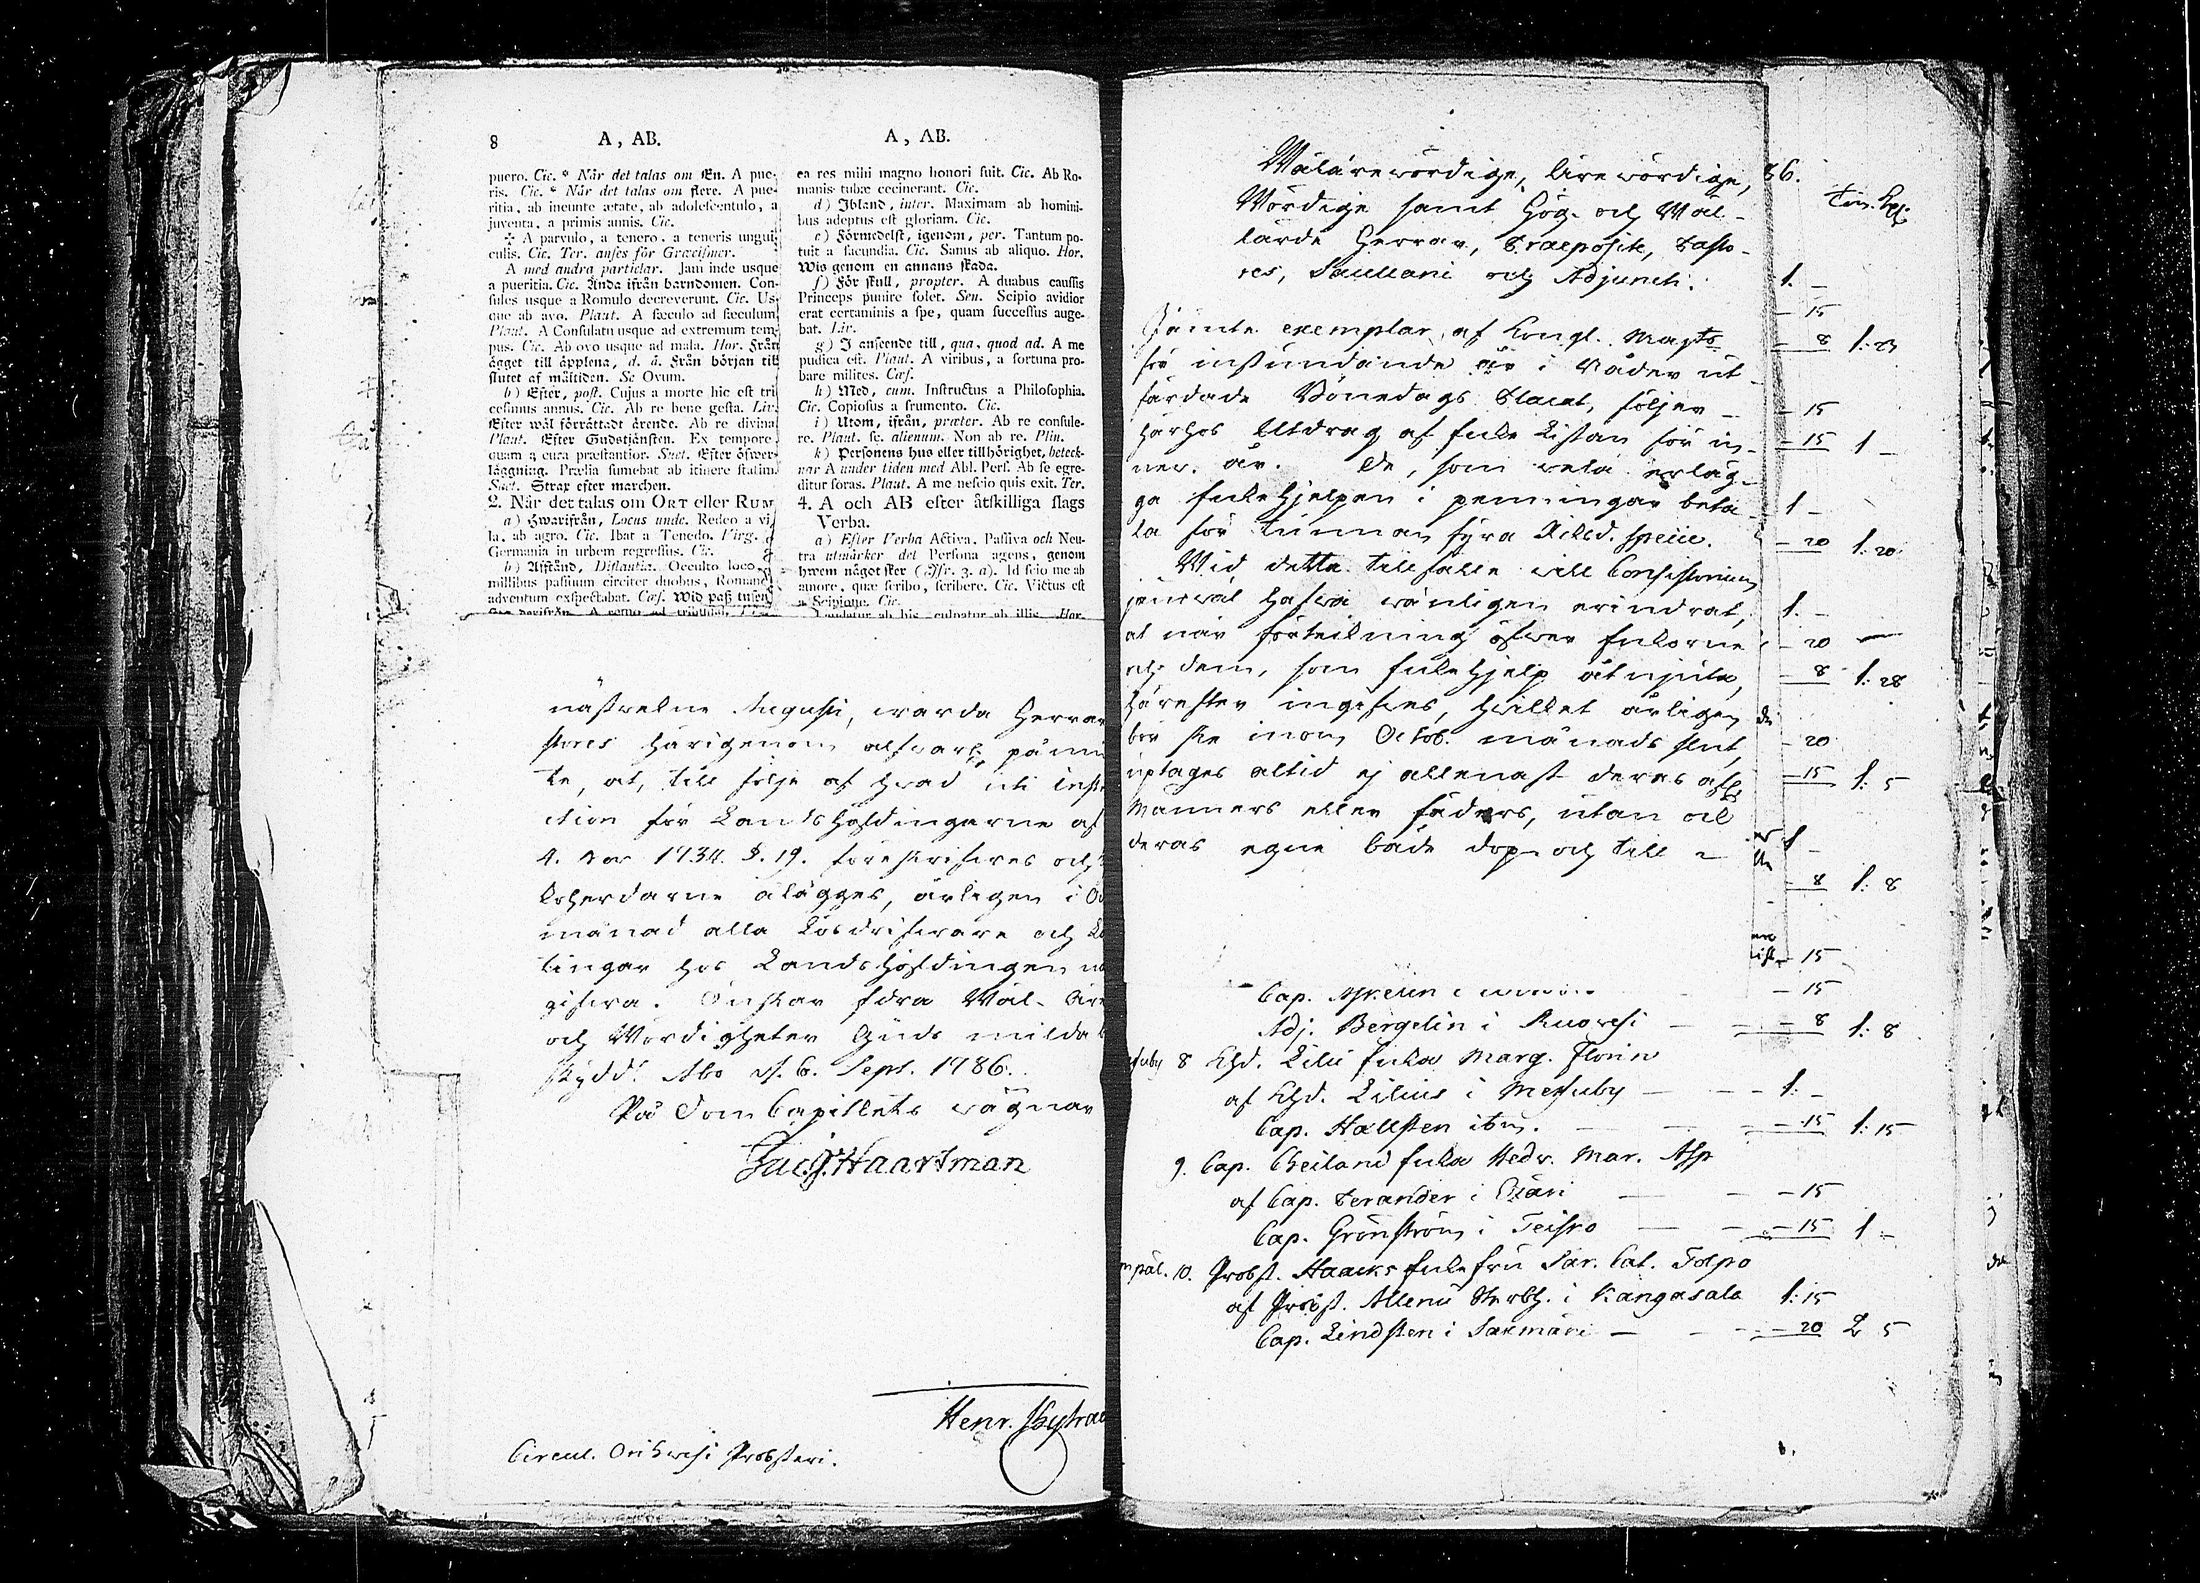 8 A, AB.
puero. Cic. * När det talas om En. A pue-
ris. Cic. * När det talas om flere. A pue-
ritia, ab ineunte ætate, ab adolescentulo, a
juventa, a primis annis. Cic.
✣ A parvulo, a tenero, a teneris ungui-
culis. Cic. Ter. anses för Græcismer.
A med andra particlar. Jam inde usque
a pueritia. Cic. Ända ifrån barndomen. Con-
sules usque a Romulo decreverunt. Cic. Us-
que ab avo. Plaut. A sæculo ad sæculum
Plaut. A Consulatu usque ad extremum tem-
pus. Cic. Ab ovo usque ad mala. Hor. Från
ägget till äpplena, d. ä. Från början till
slutet af måltiden. Se Ovum.
b) Efter, post. Cujus a morte hic est tri
cesimus annus. Cic. Ab re bene gesta. Liv.
Efter wäl förrättadt ärende. Ab re divina
Plaut. Efter Gudstjänsten. Ex tempore
quam a cura præstantior. Suet. Efter öfwer-
läggning. Prælia sumebat ab itinere statim.
Suet. Strax efter marchen.
2. När det talas om ORT eller RUM
a) Hwarifrån, Locus unde. Redeo a vi
la, ab agro. Cic. Ibat a Tenedo. Virg. a
Germania in urbem regressus. Cic.
b) Afstånd, Distantia. Occulto loco
millibus passuum circiter duobus, Romano
adventum exspectabat. Cæs. Wid paß tusen
A, AB.
ea res mihi magno honori fuit. Cic. Ab Ro-
manis tubæ cecinerant. Cic.
d) Ibland, inter. Maximam ab homini-
bus adeptus est gloriam. Cic.
e) Förmedelst, igenom, per. Tantum po-
tuit a facundia. Cic. Sanus ab aliquo. Hor.
Wis genom en annans skada.
f) För skull, propter. A duabus caussis
Princeps punire solet. Sen. Scipio avidior
erat certaminis a spe, quam successus auge-
bat. Liv.
g) I anseende till, qua, quod ad. A me
pudica est. Plaut. A viribus, a fortuna pro-
bare milites. Cæs.
h) Med, cum. Instructus a Philosophia.
Cic. Copiosus a frumento. Cic.
i) Utom, ifrån, præter. Ab re consule-
re. Plaut. sc. alienum. Non ab re. Plin.
k) Personens hus eller tillhörighet, beteck-
nar A under tiden med Abl. Pers. Ab se egre-
ditur foras. Plaut. A me nescio quis exit. Ter.
4. A och AB efter åtskilliga slags
Verba.
a) Efter Verba Activa, Passiva och Neu-
tra utmärker det Persona agens, genom
hwem något sker (Jfr. 3. a). Id scio me ab
amore, quæ scribo, scribere. Cic. Victus est
a Scipione. Cic.
Laudatur ab his, culpatur ab illis. Hor.
nästwekne Augusti, warda Herrar
stores härigenom alfwarl. påmin
te, at, till följe af hwad uti Instr
ction för Landshöfdingarne af
4. Nov 1734. §. 19. föreskrifwes och
Kyherdarne ålägges, årligen i Oc
månad alla Lösdrifware och Lä
tingar hos Landshöfdingen up
gifwa. Önskar Edra Wäl- Äre
och Wördigheter Guds milda b
skydd! Åbo d. 6. Sept. 1786.
På Dom Capitlets wägnar
Jac. J. Haartman
Henr.
Circul. Orihwesi Probsteri.
Wäläre wördige, äre wördige,
Wördige samt Hög- och Wäl-
lärde Herrar, Praepositi, Pasto-
res, Sacellani och Adjuncti.
Jämte exemplar af Kongl. Majts
för instundande år i nåder ut-
färdade Bönedags Placat, följer
härhos Utdrag af Enke Listan för in-
new. år. De, som wela erläg-
ga Enkehjelpen i penningar beta-
la för tunnan fyra Riksd. specie.
Wid detta tillfälle will Consistorium
jemwäl hafwa wänligen erindrat,
at när förtekning öfwer Enkorne
och dem, som Enkehjelp åtnjuta,
härefter ingifwes, hwilket årligen
bör ske inom Octob. månads slut,
uptages altid ej allenast deras afl.
Manners eller fäders, utan ock
deras egne både dop- och till-
86.
Tun. Kp.
1. –
– 15
– 8 1: 23
– 15
– 15 1 –
1 –
– 20 1: 20
1. –
– 20
– 8 1: 28
– 20
– 15 1: 5
1 –
– 8 1: 8
– 15
Cap. – 15
Adj. Bergelin i Ruowesi – 8 1: 8
8 Khd. Lilii Enka Marg. Florin
af Khd. Lilius i Messuby 1: –
Cap. Hallsten ibm. – 15 1: 15
9. Cap. Cheilani Enka Hedv. Mar. Asp
af Cap. Perander i Etzäri – 15
Cap. Grönström i Teisko – 15 1 –
10. Probst. Haacks Enkefru Sar. Cat. Tolpo
af Probst. Allenii Sterbh. i Kangasala 1: 15
Cap. Lindsten i Saxmäri – 20 2 5